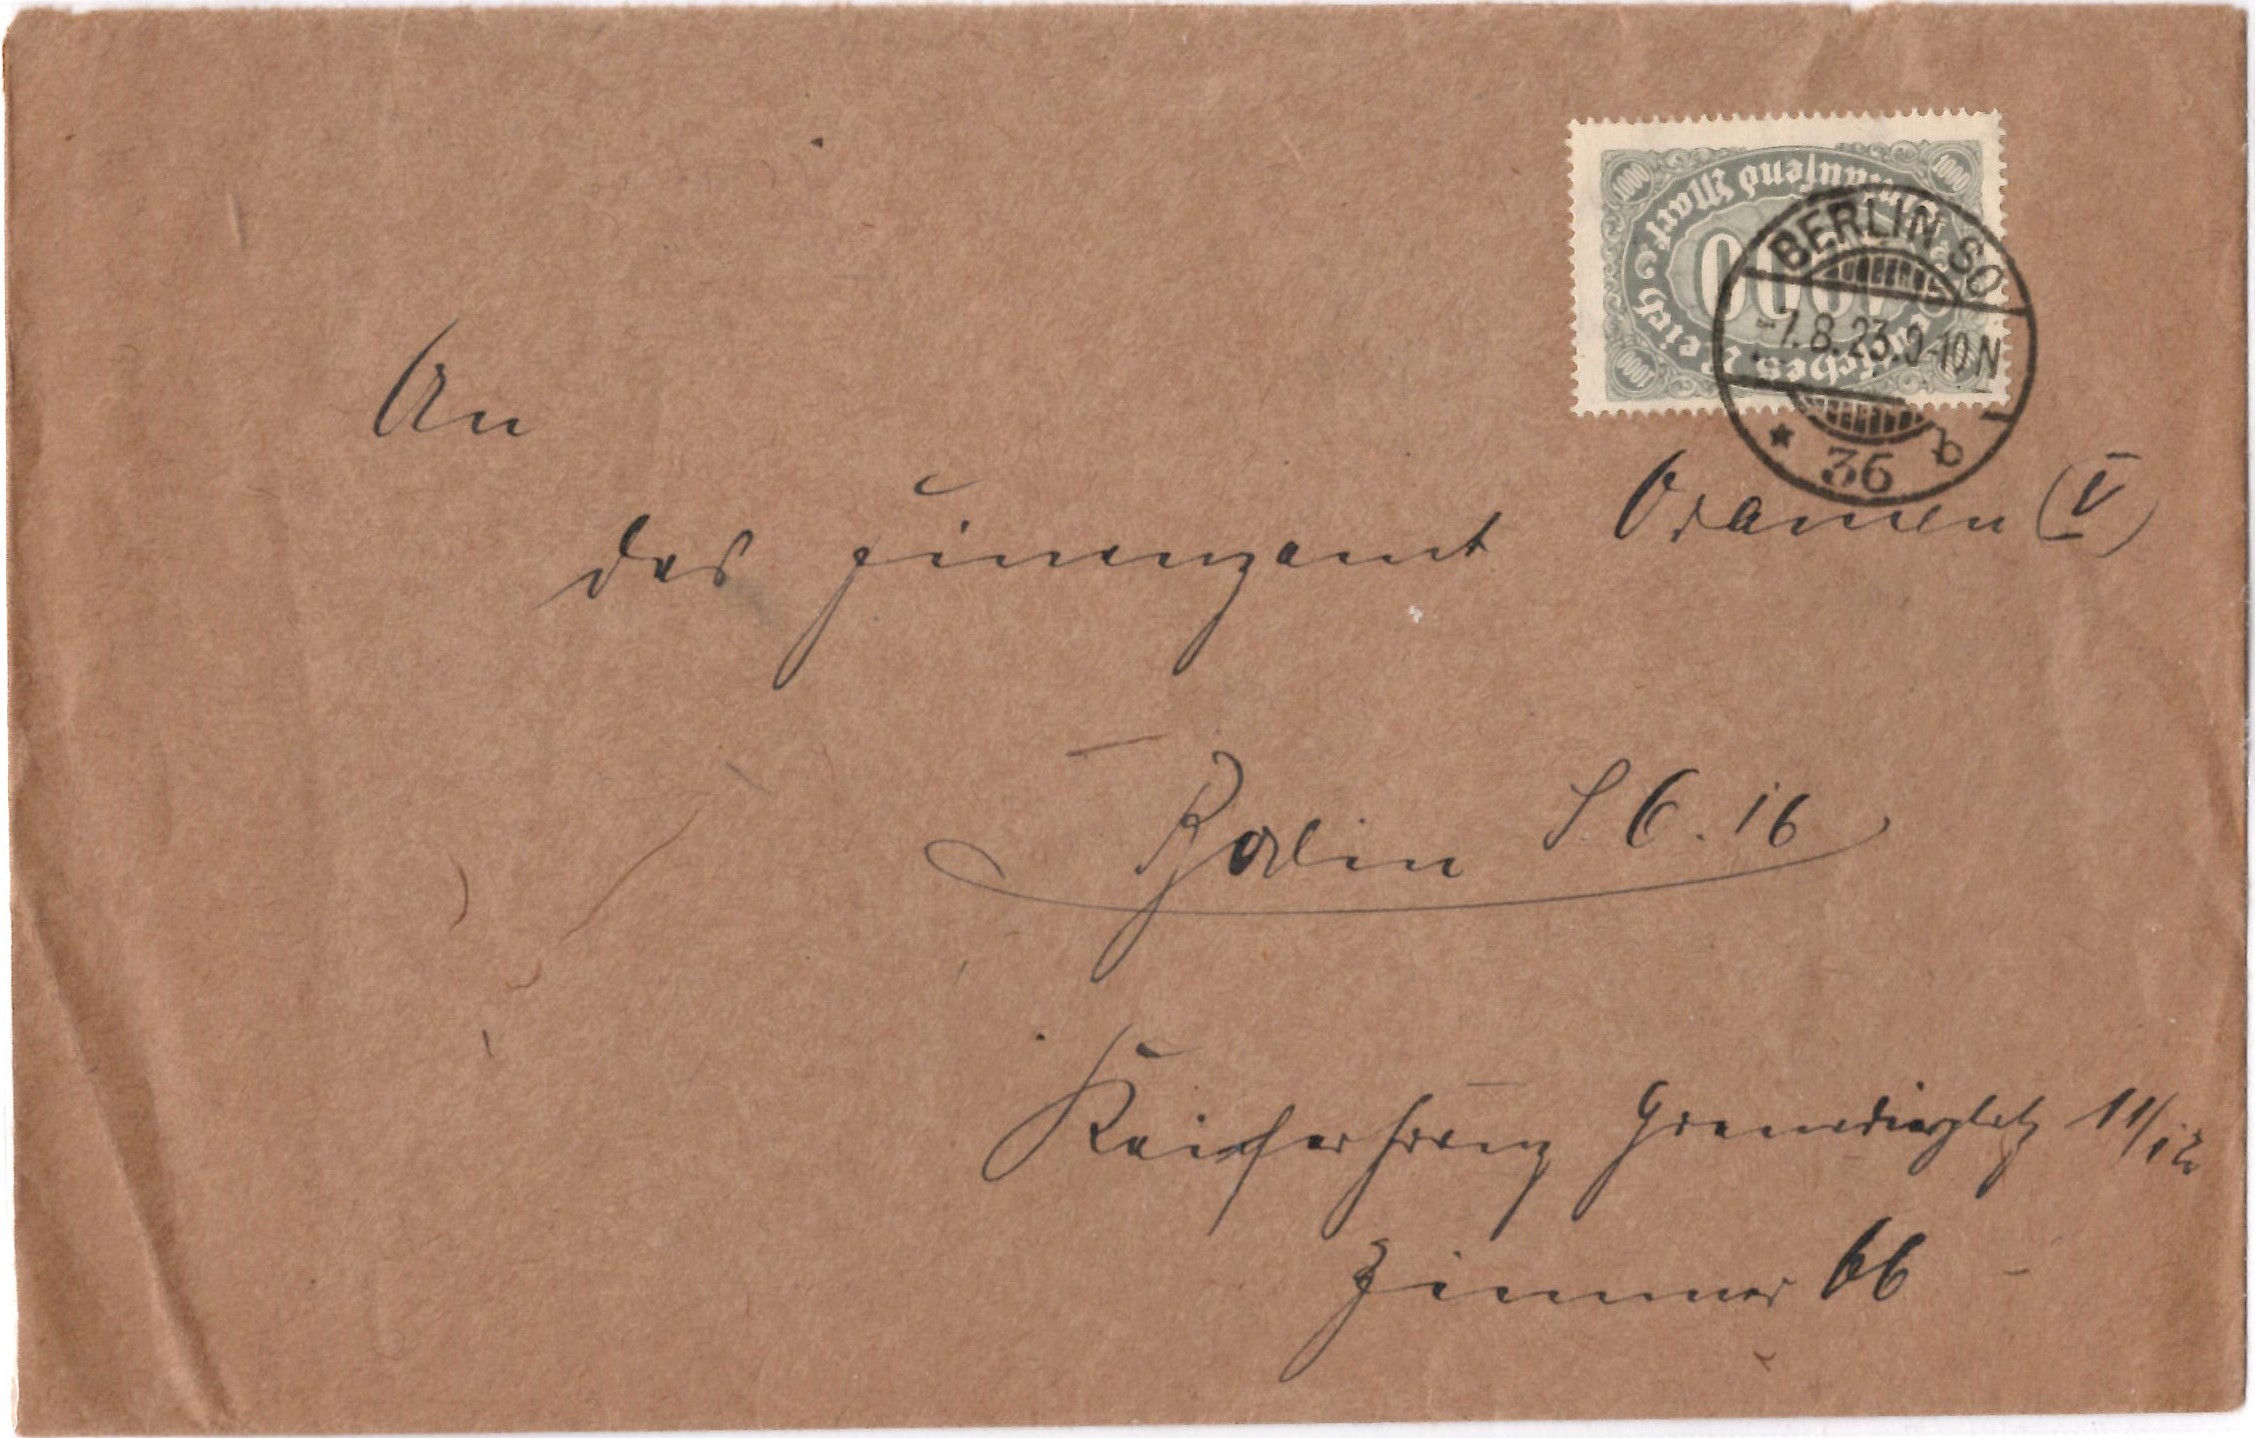 1000 1000
Eintausend Mark
1000
Deutsches Reich
1000 1000
BERLIN SO
-7.8.23.9-10N
* 36 b
An
das Finanzamt Oranien (V)
Berlin S.O.16
Kaiser Franz Grenadierplatz 11/12
Zimmer 66